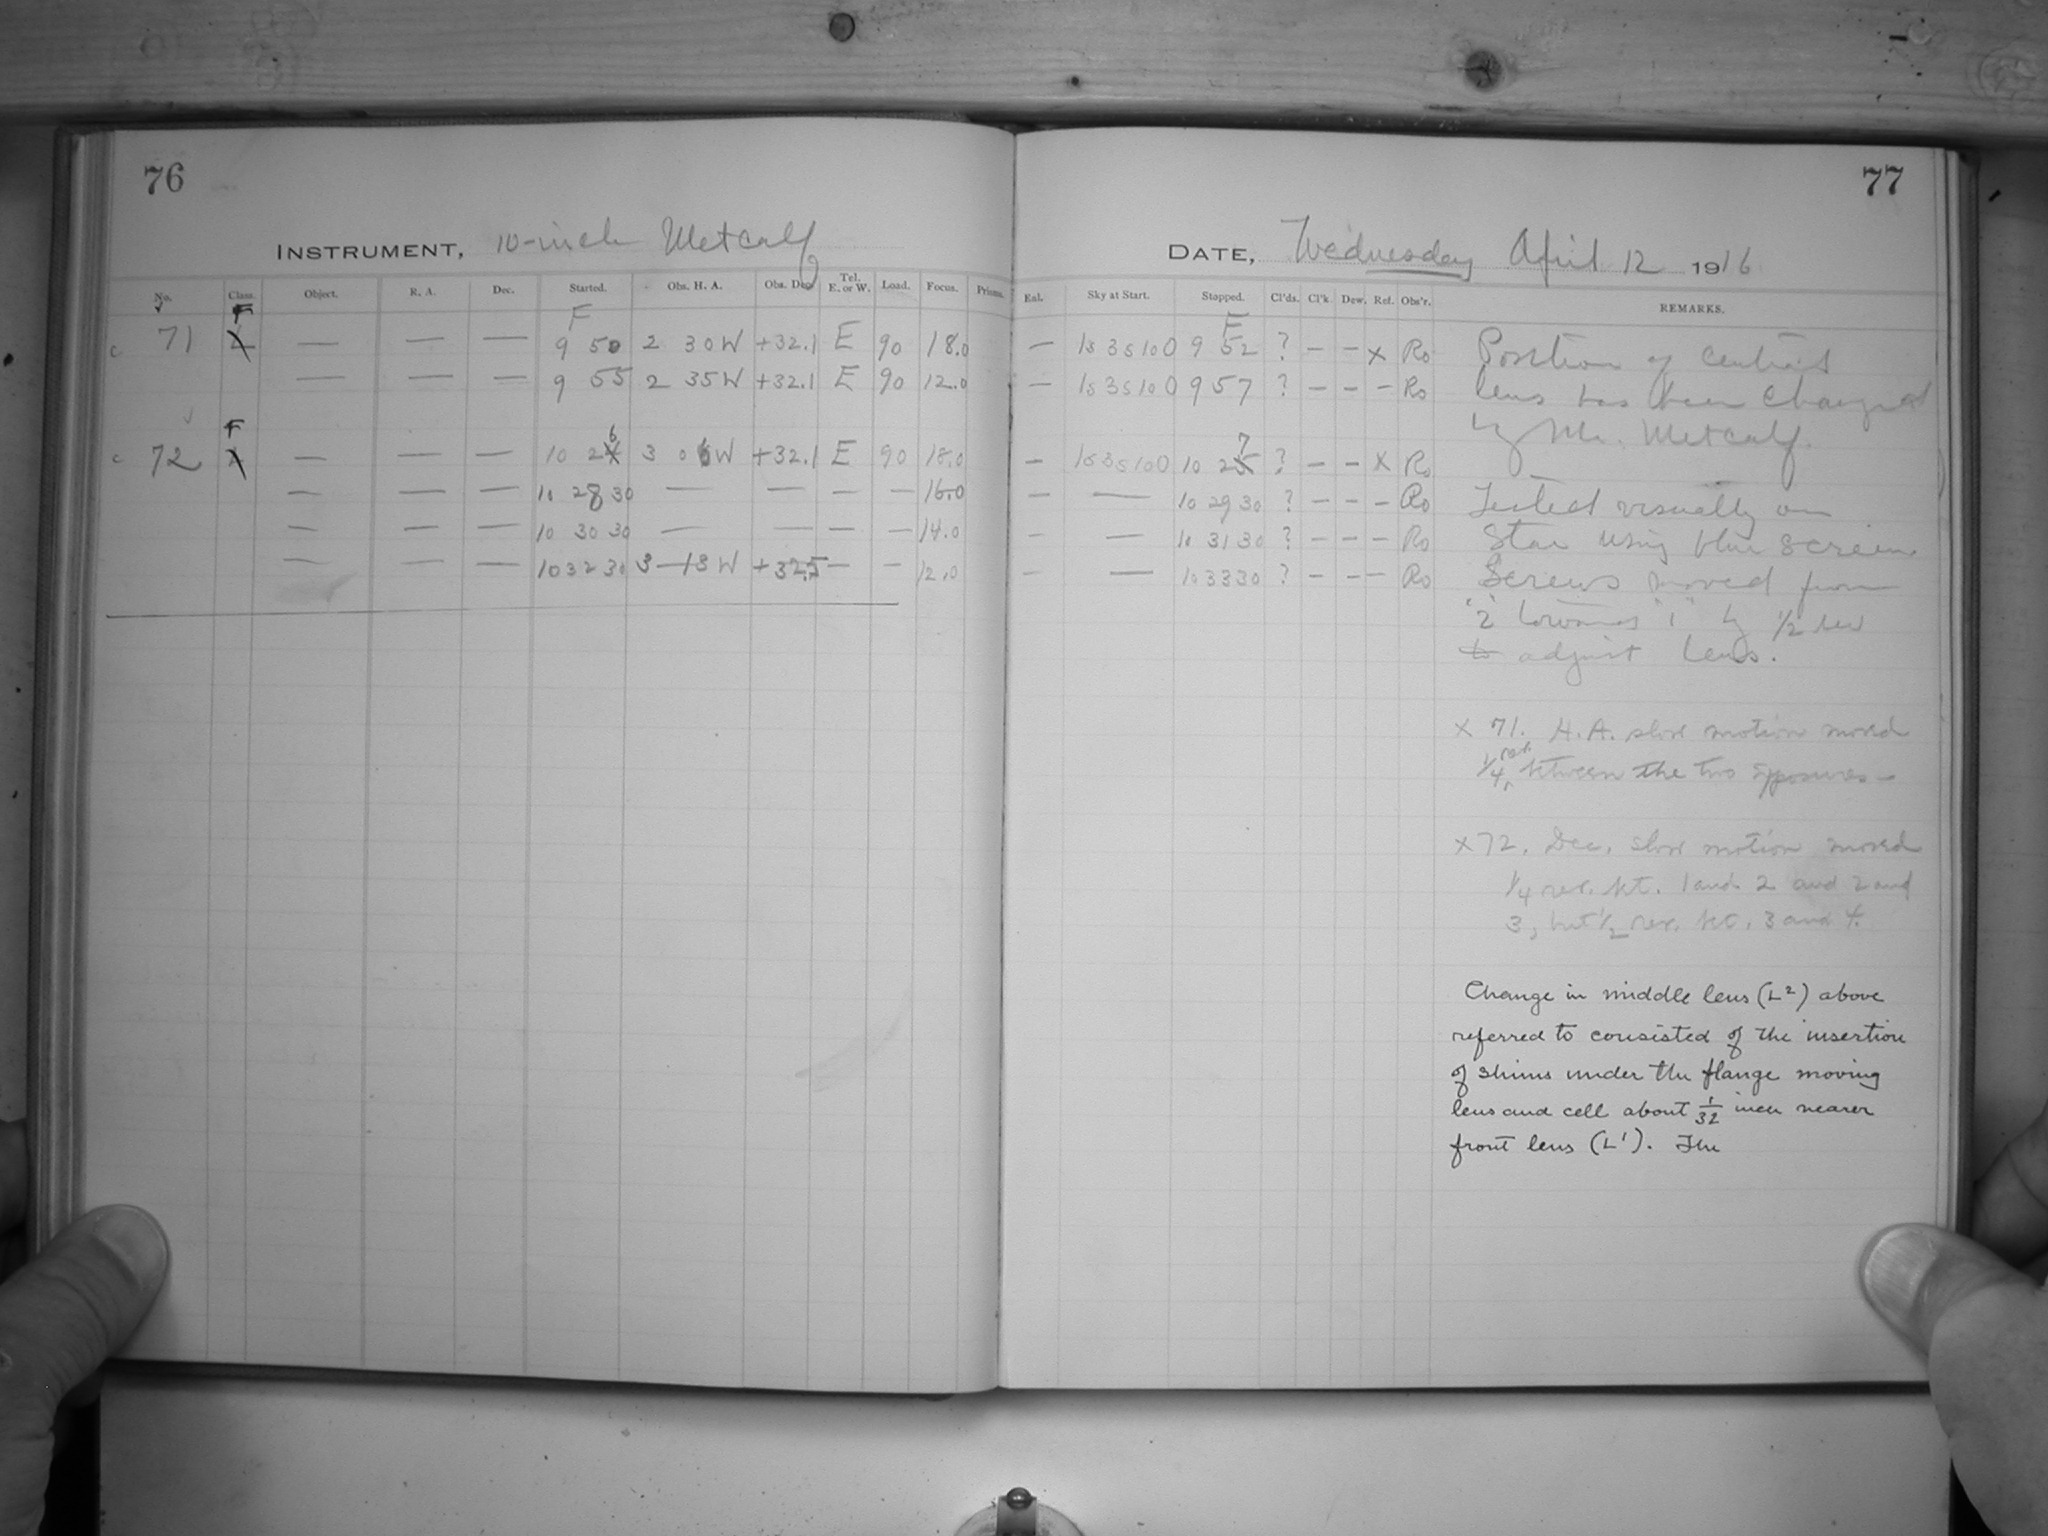 76
INSTRUMENT, 10-inch Metcalf
No. Class. Object. R. A. Dec. Started. Obs. H. A. Obs. Dec. Tel. E. or W. Load. Focus. Prisms.
F F
c 71 — — — 9 50 2 30 W +32.1 E 90 18.0
— — — 9 55 2 35 W +32.1 E 90 12.0
F 6
c 72 — — — 10 2 3 06 W +32.1 E 90 18.0
— — — 10 28 30 — — — — 16.0
— — — 10 30 30 — — — — 14.0
— — — 10 32 30 3 — 13 W +32.5 — — 12.0
77
DATE, Wednesday April 12 1916
Eal. Sky at Start. Stopped. Cl'ds. Cl'k. Dew. Ref. Obs'r. REMARKS.
F
— 1s 3s 100 9 52 ? — — x Ro
— 1s 3s 100 9 57 ? — — — Ro
7
— 1s 3s 100 10 25 ? — — x Ro
— — 10 29 30 ? — — — Ro
— — 10 31 30 ? — — — Ro
— — 10 33 30 ? — — — Ro
Position of central
lens has been changed
by Mr. Metcalf.
Tested visually on
Star using blue screen
Screws moved from
"2" towards "1" by 1/2 rev
to adjust lens.
x 71. H.A. slow motion moved
1/4 rev. between the two exposures —
x 72. Dec. slow motion moved
1/4 rev. bet. 1 and 2 and 2 and
3, but 1/2 rev. bet. 3 and 4.
Change in middle lens (L²) above
referred to consisted of the insertion
of shims under the flange moving
lens and cell about 1/32 inch nearer
front lens (L'). The